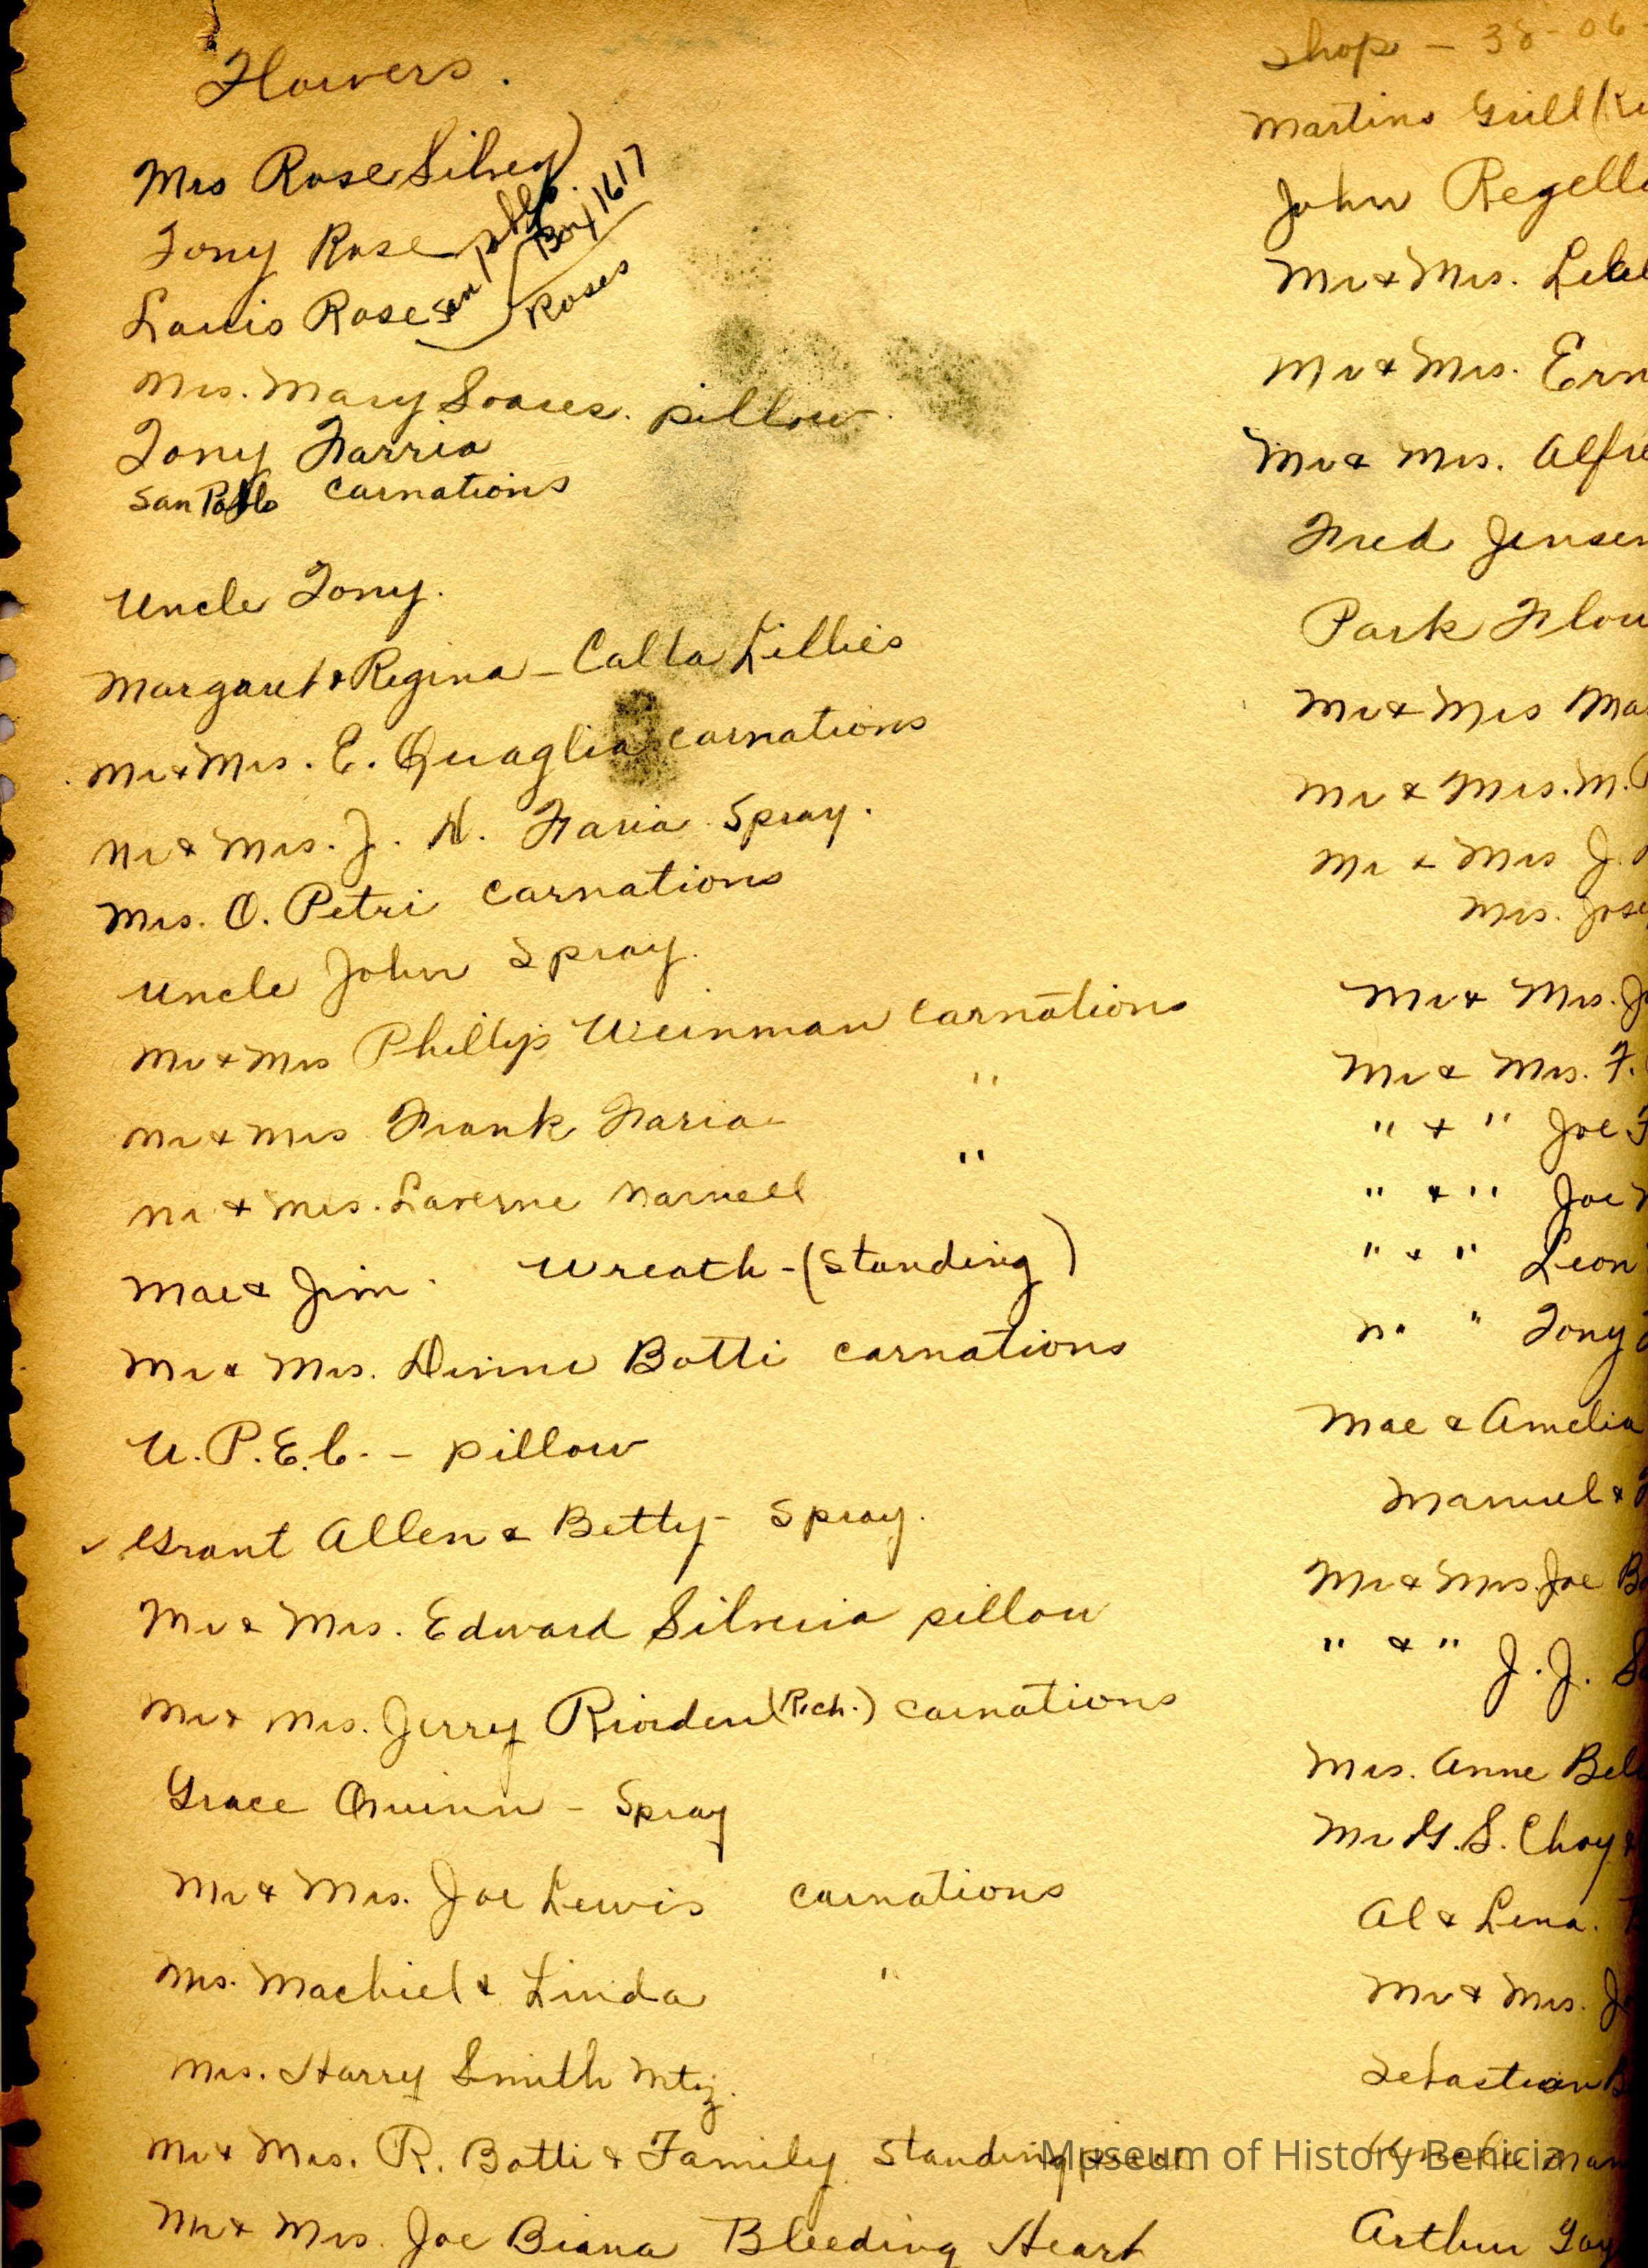 Flowers.
Mrs Rose Silvey)
Tony Rose San Pablo Box 1617
Louis Rose Roses
Mrs. Mary Soares. pillow.
Tony Farria
San Pablo carnations
Uncle Tony.
Margaret & Regina - Calla Lillies
Mr & Mrs. E. Quaglia carnations
Mr & Mrs. J. N. Faria Spray.
Mrs. O. Petri carnations
Uncle John Spray.
Mr & Mrs Phillips Weinman carnations
Mr & Mrs Frank Faria "
Mr & Mrs. Laverne "
Mae & Jim. Wreath - (Standing)
Mr & Mrs. Botti carnations
U.P.E.C. - pillow
✓ Grant Allen & Betty - Spray.
Mr & Mrs. Edward Silveria pillow
Mr & Mrs. Jerry Riorden (Rich.) carnations
Grace Quinn - Spray
Mr & Mrs. Joe Lewis carnations
Mrs. Machiel & Linda "
Mrs. Harry Smith Mtz.
Mr & Mrs. R. Botti & Family Standing
Mr & Mrs. Joe Biana Bleeding Heart
Shop - 38-06
Martins Grill
John Regello
Mr & Mrs.
Mr & Mrs. Ern
Mr & Mrs. Alfre
Fred Jensen
Park Flow
Mr & Mrs Ma
Mr & Mrs. M.
Mr & Mrs J.
Mrs. Jose
Mr & Mrs. J
Mr & Mrs. F.
" & " Joe F
" & " Joe
" & " Leon
" " Tony
Mae & Amelia
Manuel &
Mr & Mrs. Joe B
" & " J. J. S
Mrs. Anne Bel
Mr G. S. Choy &
Al & Lena.
Mr & Mrs. J
Sebastian B
Uncle Man
Arthur Gay
Museum of History Benicia